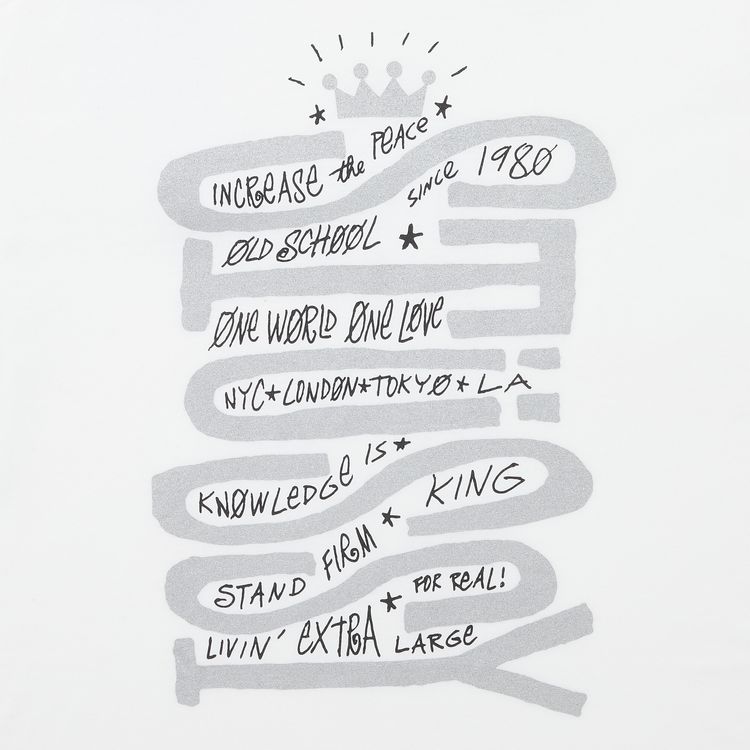 STÜSSY
INCREASE the PEACE
SINCE 1980
OLD SCHOOL ★
ONE WORLD ONE LOVE
NYC★LONDON★TOKYO★LA
KNOWLEDGE IS★ KING
STAND FIRM ★ FOR REAL!
LIVIN' EXTRA LARGE